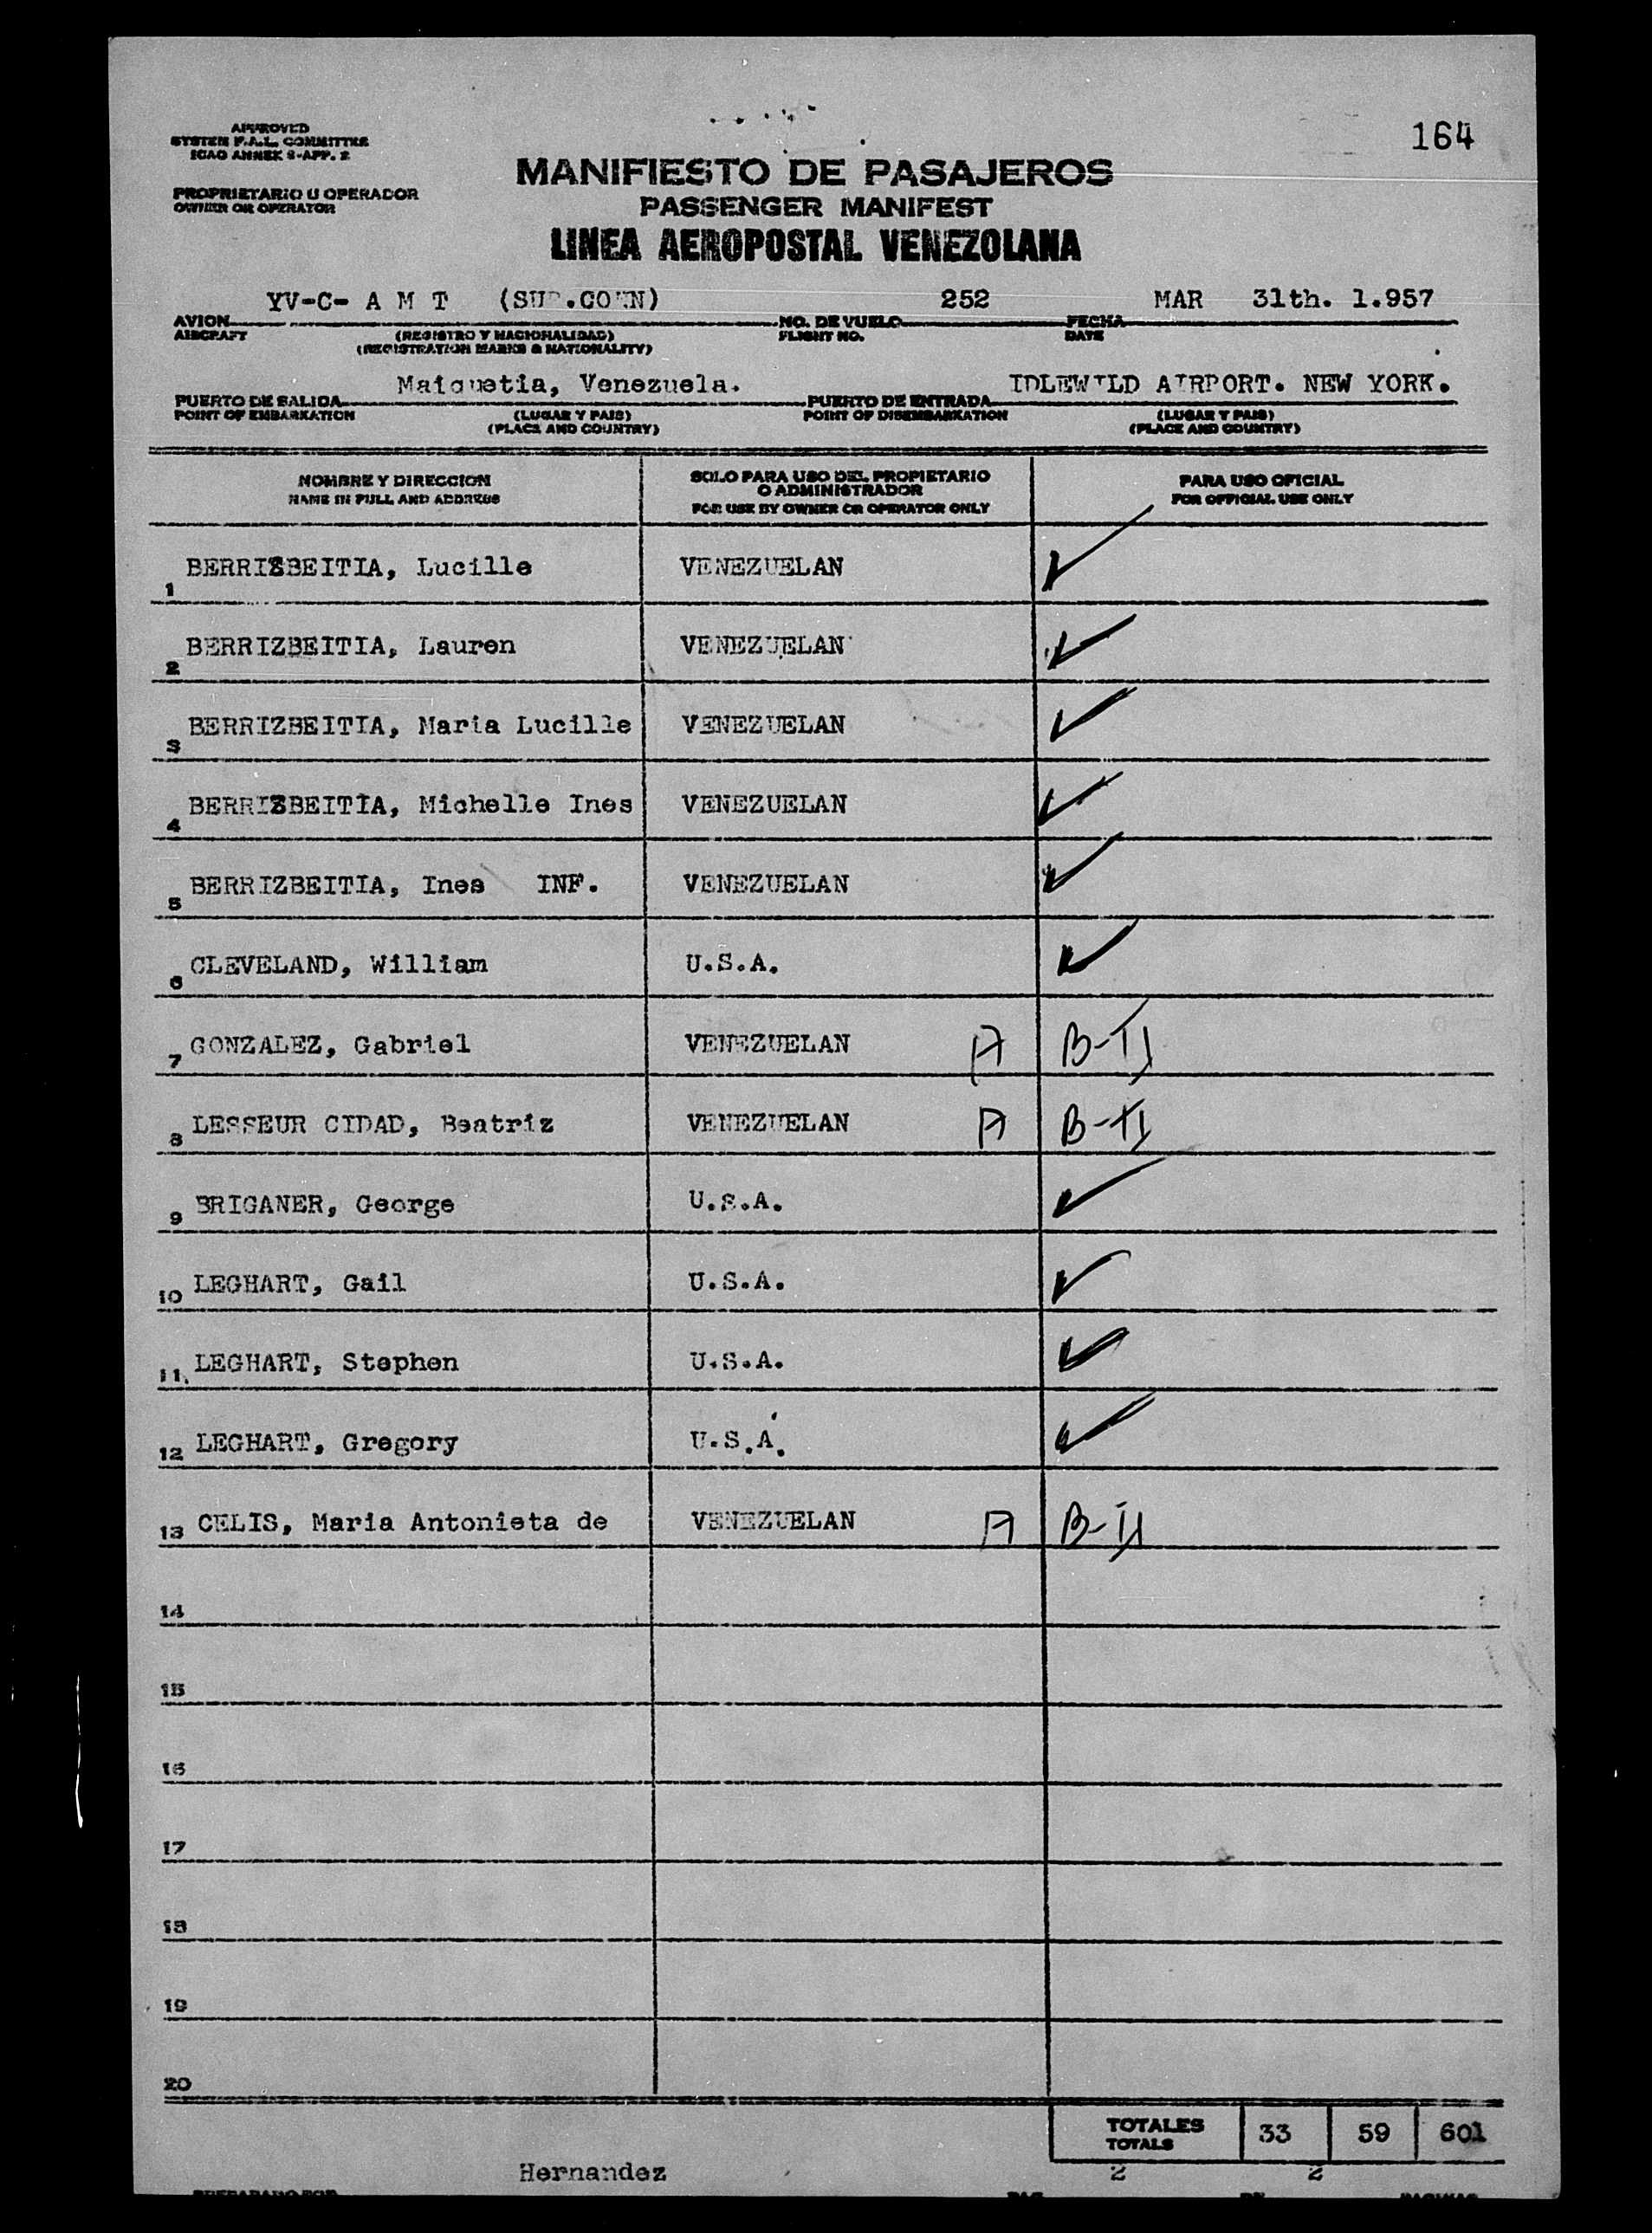 164
APPROVED
SYSTEM F.A.L. COMMITTEE
ICAO ANNEX 9-APP. 2
MANIFIESTO DE PASAJEROS
PROPRIETARIO U OPERADOR
OWNER OR OPERATOR
PASSENGER MANIFEST
LINEA AEROPOSTAL VENEZOLANA
YV-C- A M T (SUP.CONN) 252 MAR 31th. 1.957
AVION NO. DE VUELO FECHA
AIRCRAFT (REGISTRO Y NACIONALIDAD) FLIGHT NO. DATE
(REGISTRATION MARKS & NATIONALITY)
Maiquetia, Venezuela. IDLEWILD AIRPORT. NEW YORK.
PUERTO DE SALIDA PUERTO DE ENTRADA
POINT OF EMBARKATION (LUGAR Y PAIS) POINT OF DISEMBARKATION (LUGAR Y PAIS)
(PLACE AND COUNTRY) (PLACE AND COUNTRY)
NOMBRE Y DIRECCION SOLO PARA USO DEL PROPIETARIO PARA USO OFICIAL
NAME IN FULL AND ADDRESS O ADMINISTRADOR FOR OFFICIAL USE ONLY
FOR USE BY OWNER OR OPERATOR ONLY
1 BERRIZBEITIA, Lucille VENEZUELAN ✓
2 BERRIZBEITIA, Lauren VENEZUELAN ✓
3 BERRIZBEITIA, Maria Lucille VENEZUELAN ✓
4 BERRIZBEITIA, Michelle Ines VENEZUELAN ✓
5 BERRIZBEITIA, Ines INF. VENEZUELAN ✓
6 CLEVELAND, William U.S.A. ✓
7 GONZALEZ, Gabriel VENEZUELAN A B-II
8 LESSEUR CIDAD, Beatriz VENEZUELAN A B-II
9 BRIGANER, George U.S.A. ✓
10 LEGHART, Gail U.S.A. ✓
11 LEGHART, Stephen U.S.A. ✓
12 LEGHART, Gregory U.S.A. ✓
13 CELIS, Maria Antonieta de VENEZUELAN A B-II
14
15
16
17
18
19
20
TOTALES 33 59 601
TOTALS
Hernandez 2 2